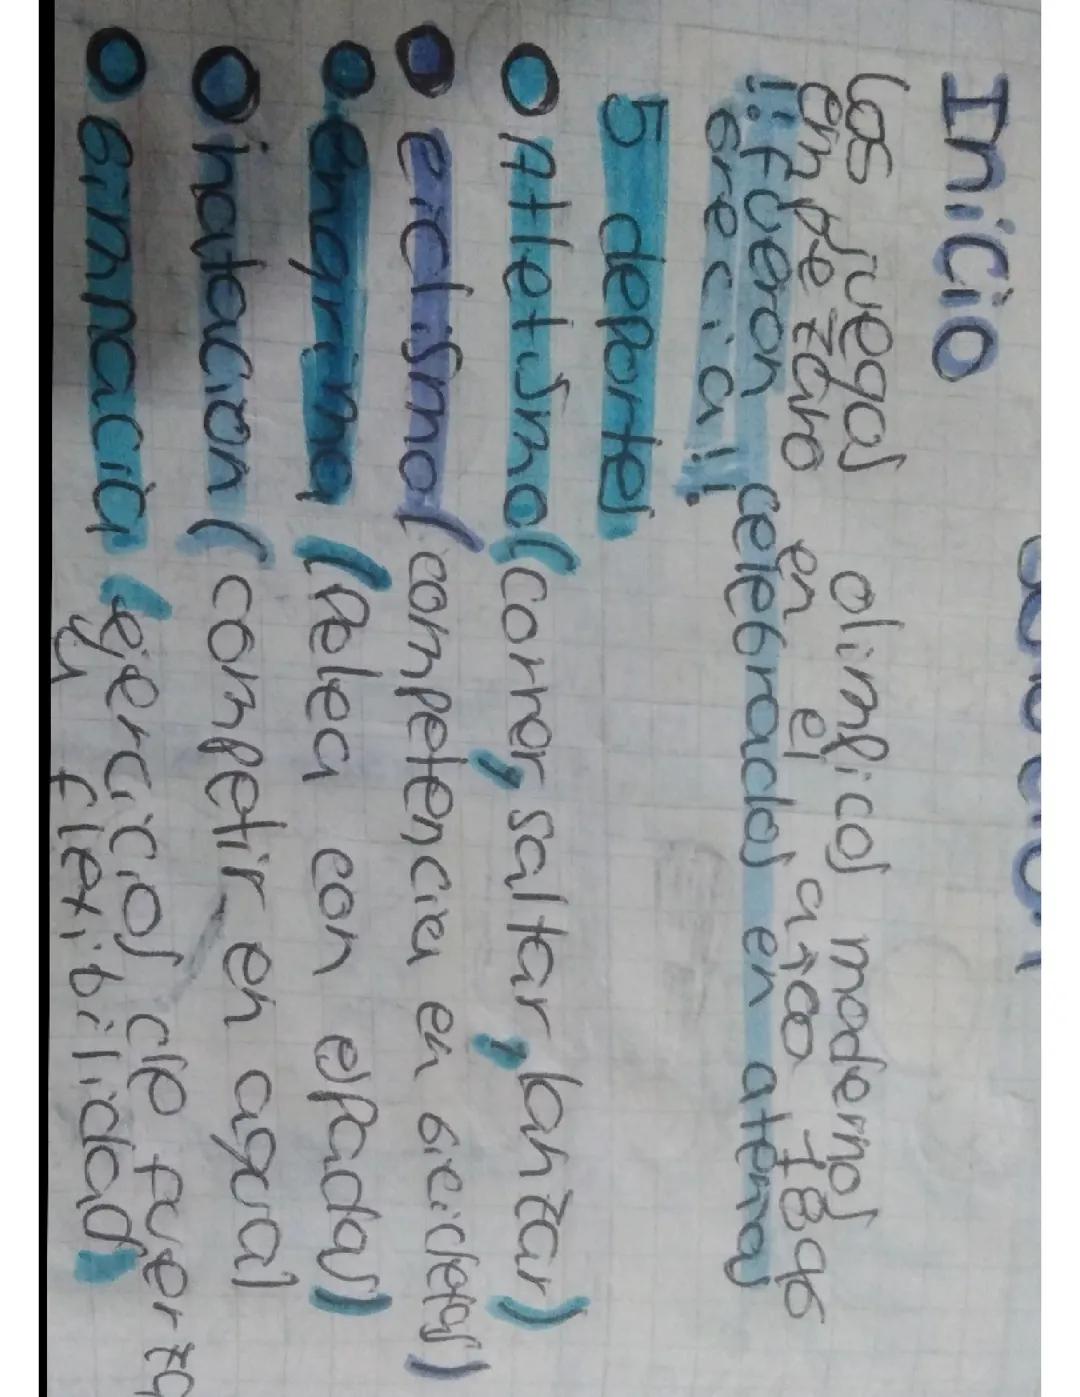 Inicio
los juegos olimpicos modernos
enpezaro en el añoo 1896
!¡fueron celebrados en atenas
grecia!!
5 deportes
Atletismo(correr, saltar, lanzar)
ciclismo(competencia en bicicletas)
(Pelea con espadas)
natacion (competir en aguas
gimnacia (ejercicios de fuerza
y flexibilidad,